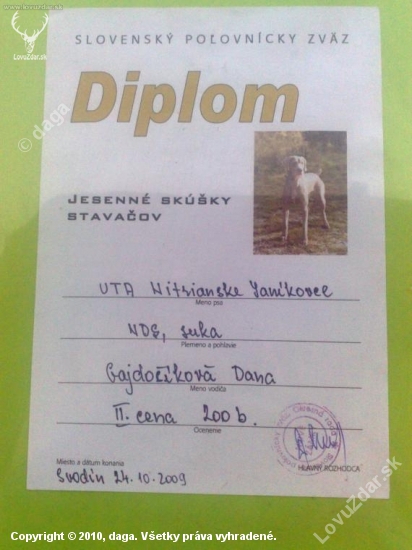 www.lovuzdar.sk
LovuZdar.sk
© daga
SLOVENSKÝ POĽOVNÍCKY ZVÄZ
Diplom
JESENNÉ SKÚŠKY
STAVAČOV
UTA Nitrianske Janíkovce
Meno psa
NDS, suka
Plemeno a pohlavie
Gajdočíková Dana
Meno vodiča
II. cena 200 b.
Ocenenie
Miesto a dátum konania
HLAVNÝ ROZHODCA
Svodín 24.10.2009
LovuZdar.sk
Copyright © 2010, daga. Všetky práva vyhradené.